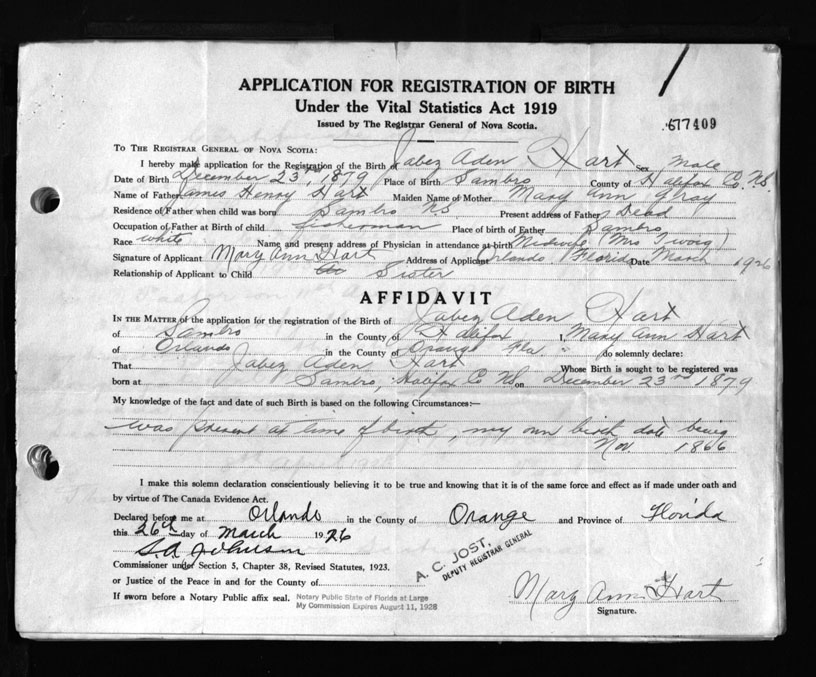 APPLICATION FOR REGISTRATION OF BIRTH
Under the Vital Statistics Act 1919
Issued by The Registrar General of Nova Scotia.
677409
TO THE REGISTRAR GENERAL OF NOVA SCOTIA:
I hereby make application for the Registration of the Birth of Jabez Aden Hart Male
Date of Birth December 23rd, 1879 Place of Birth Sambro County of Halifax Co. N.S.
Name of Father James Henry Hart Maiden Name of Mother Mary Ann Gray
Residence of Father when child was born Sambro NS Present address of Father Dead
Occupation of Father at Birth of child fisherman Place of birth of Father Sambro
Race white Name and present address of Physician in attendance at birth Midwife (Mrs Twoig)
Signature of Applicant Mary Ann Hart Address of Applicant Orlando Florida Date March 1926
Relationship of Applicant to Child Sister
AFFIDAVIT
IN THE MATTER of the application for the registration of the Birth of Jabez Aden Hart
of Sambro in the County of Halifax I, Mary Ann Hart
of Orlando in the County of Orange Fla " do solemnly declare:
That Jabez Aden Hart Whose Birth is sought to be registered was
born at Sambro, Halifax Co NS on December 23rd 1879
My knowledge of the fact and date of such Birth is based on the following Circumstances:—
was present at time of birth, my own birth date being
Nov 1866
I make this solemn declaration conscientiously believing it to be true and knowing that it is of the same force and effect as if made under oath and
by virtue of The Canada Evidence Act.
Declared before me at Orlando in the County of Orange and Province of Florida
this 26th day of March 1926
S.A. Johnson
Commissioner under Section 5, Chapter 38, Revised Statutes, 1923.
A. C. JOST,
DEPUTY REGISTRAR GENERAL
or Justice of the Peace in and for the County of
If sworn before a Notary Public affix seal. Notary Public State of Florida at Large
My Commission Expires August 11, 1928
Mary Ann Hart
Signature.